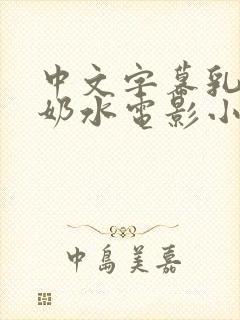 中文字幕乳
奶水电影小
中島美嘉